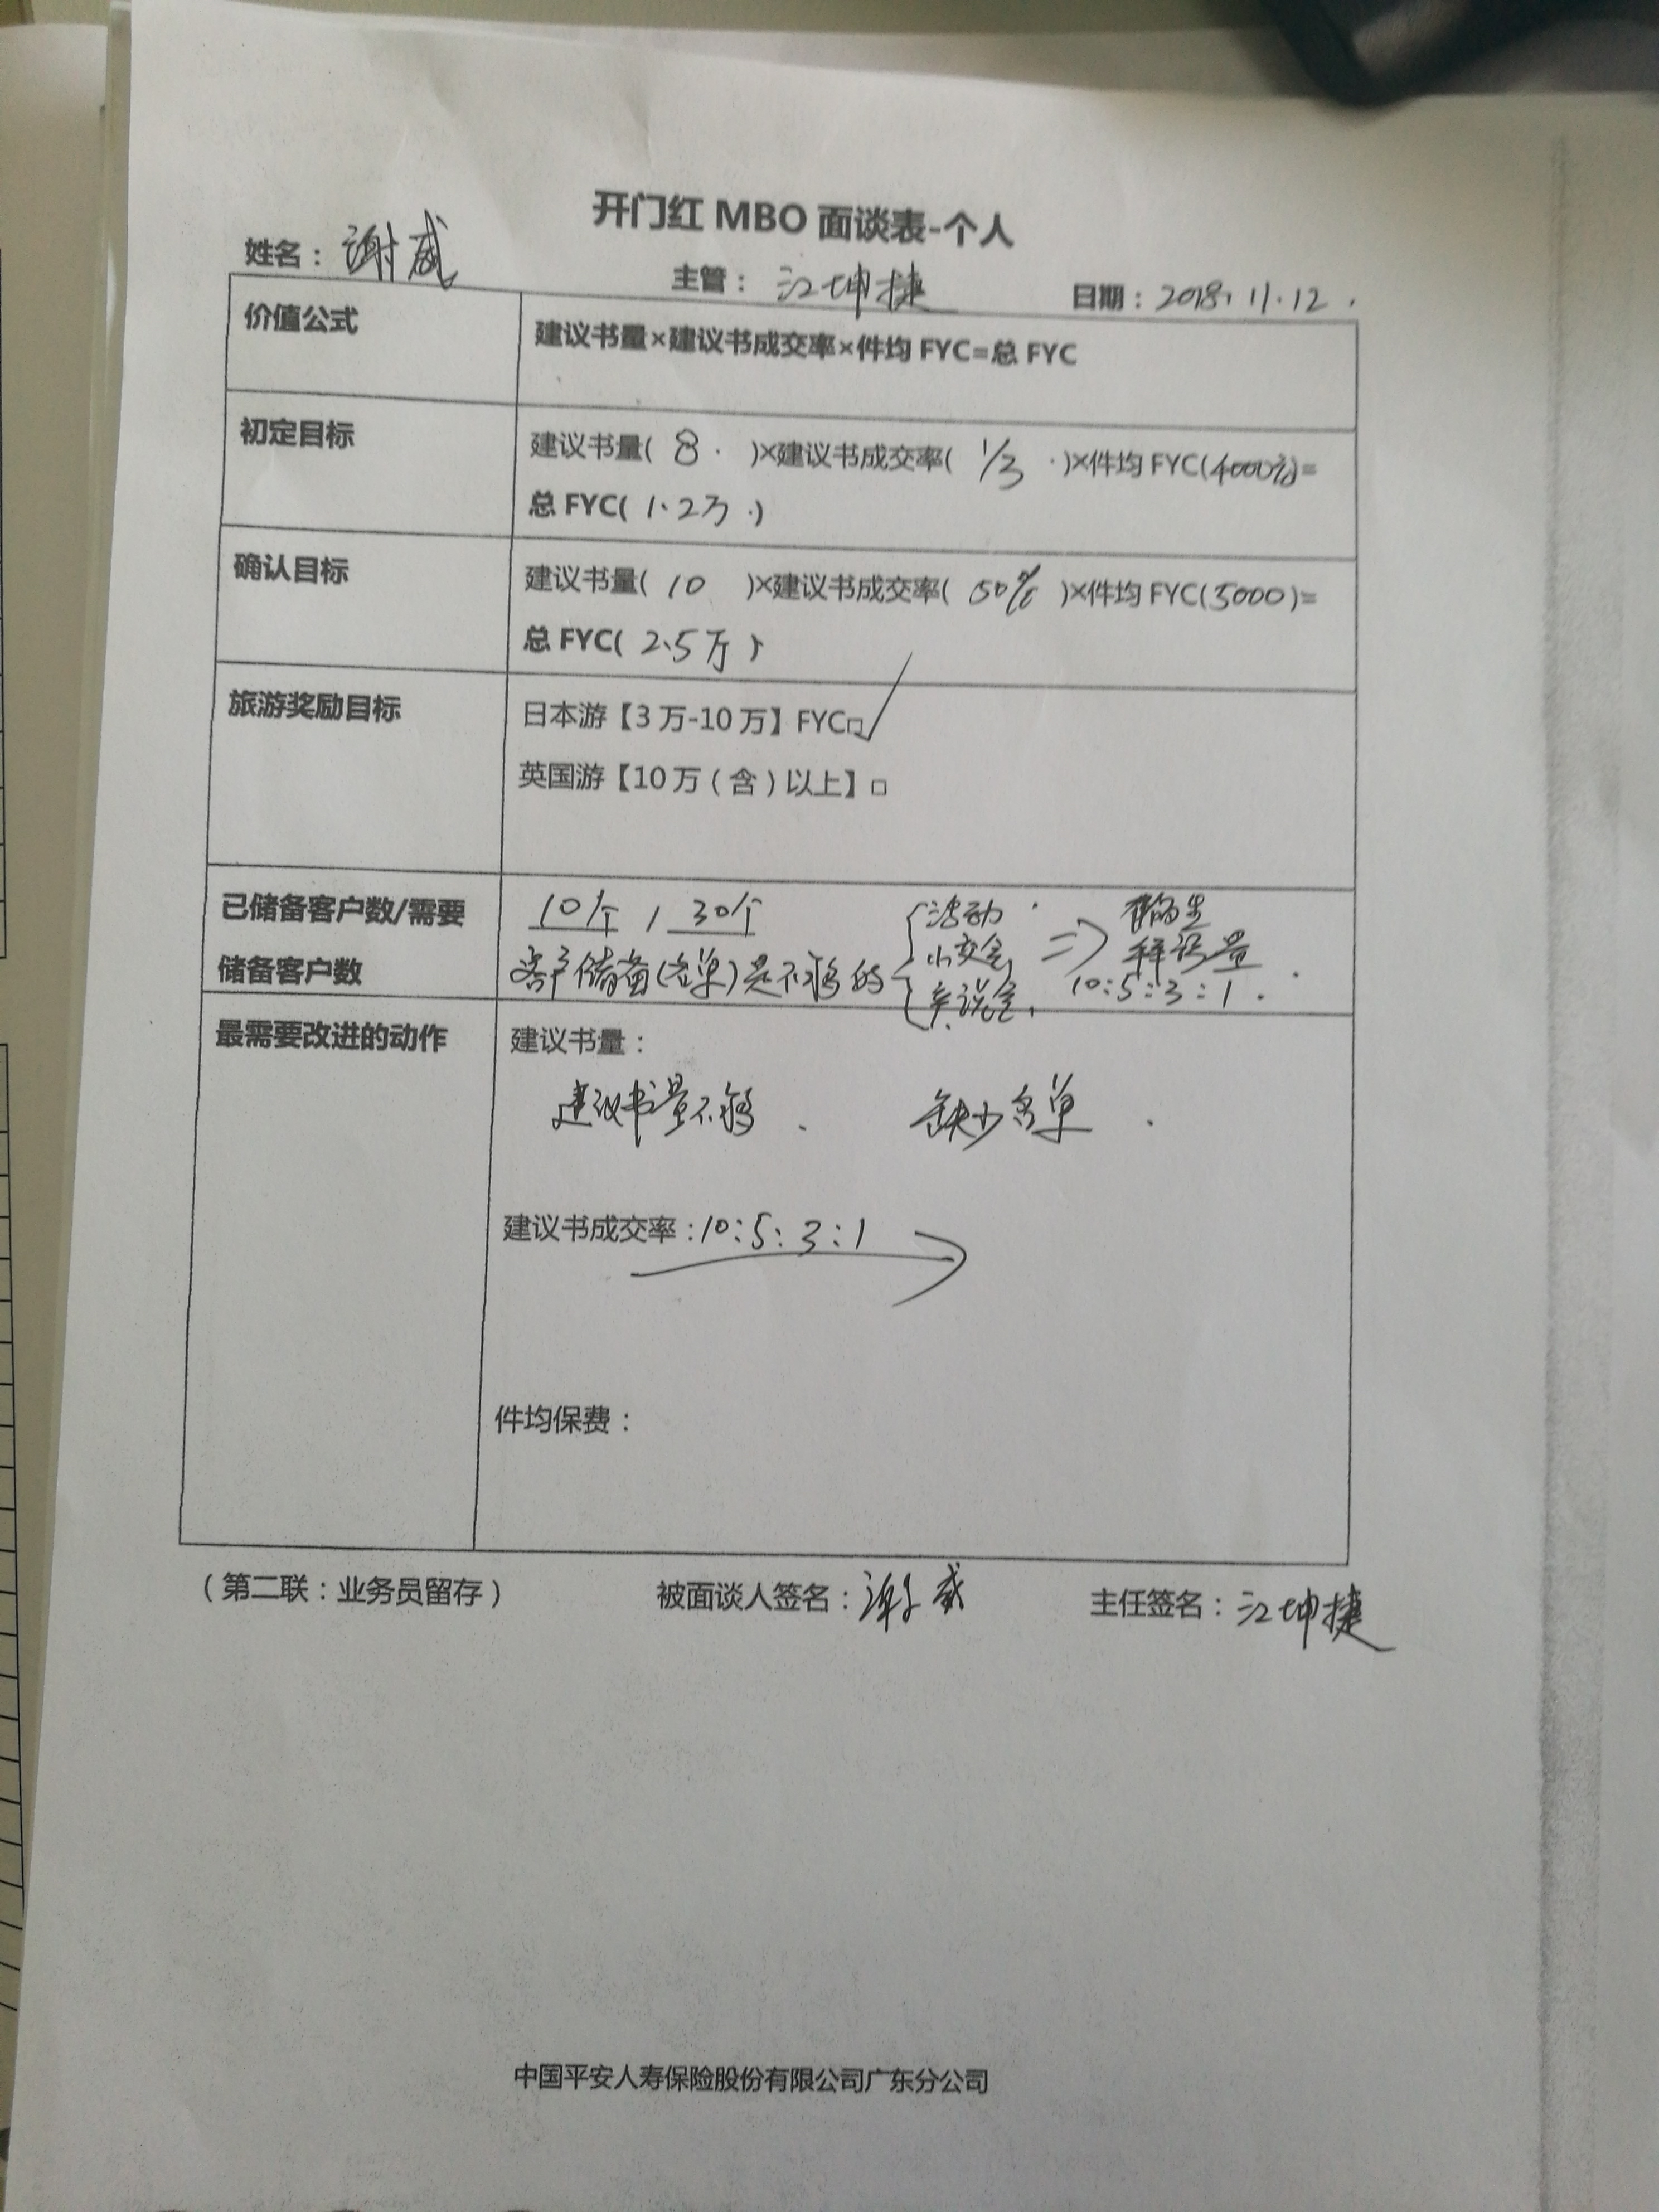 开门红 MBO 面谈表-个人
姓名：谢威 主管：江坤捷 日期：2018.11.12.
价值公式 建议书量×建议书成交率×件均 FYC=总 FYC
初定目标 建议书量( 8 )×建议书成交率( 1/3 )×件均 FYC(4000元)=
总 FYC( 1.2万 )
确认目标 建议书量( 10 )×建议书成交率( 50% )×件均 FYC(5000)=
总 FYC( 2.5万 )
旅游奖励目标 日本游【3 万-10 万】FYC□√
英国游【10 万（含）以上】□
已储备客户数/需要 10个 / 30个
储备客户数 客户储备(名单)是不够的 { 活动 小交会 产说会 ⇒ 拜访量 10:5:3:1.
最需要改进的动作 建议书量：
建议书量不够. 缺少名单.
建议书成交率：10:5:3:1
件均保费：
（第二联：业务员留存） 被面谈人签名：谢威 主任签名：江坤捷
中国平安人寿保险股份有限公司广东分公司